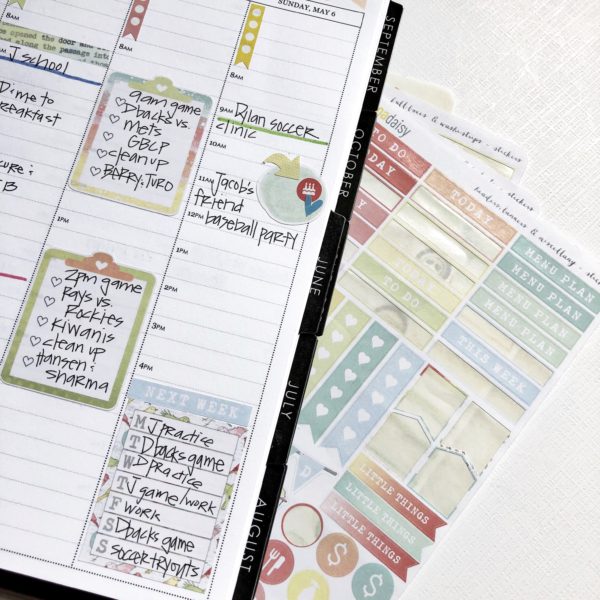 SUNDAY, MAY 6
8AM
8AM
8AM
opened the door and
along the passage into
J school
9AM
Dylan soccer
clinic
Dime to
breakfast
9am game
Dbacks vs.
Mets
GBCP
clean up
Berry: Turo
10AM
11AM
Jacob's
friend
12PM
baseball party
B
1PM
1PM
2PM
3PM
4PM
2pm game
Rays vs.
Rockies
Kiwanis
clean up
Hansen :
Sharma
NEXT WEEK
M J practice
T Dbacks game
W D practice
T J game/work
F work
S Dbacks game
S soccer tryouts
SEPTEMBER
OCTOBER
JUNE
JULY
AUGUST
daisy
full boxes & washi strips - stickers
- stickers
headers, banners & scrolling - stick
TO DO
TODAY
TODAY
TODAY
TO DO
MENU PLAN
MENU PLAN
MENU PLAN
MENU PLAN
THIS WEEK
LITTLE THINGS
LITTLE THINGS
LITTLE THINGS
D
$
$